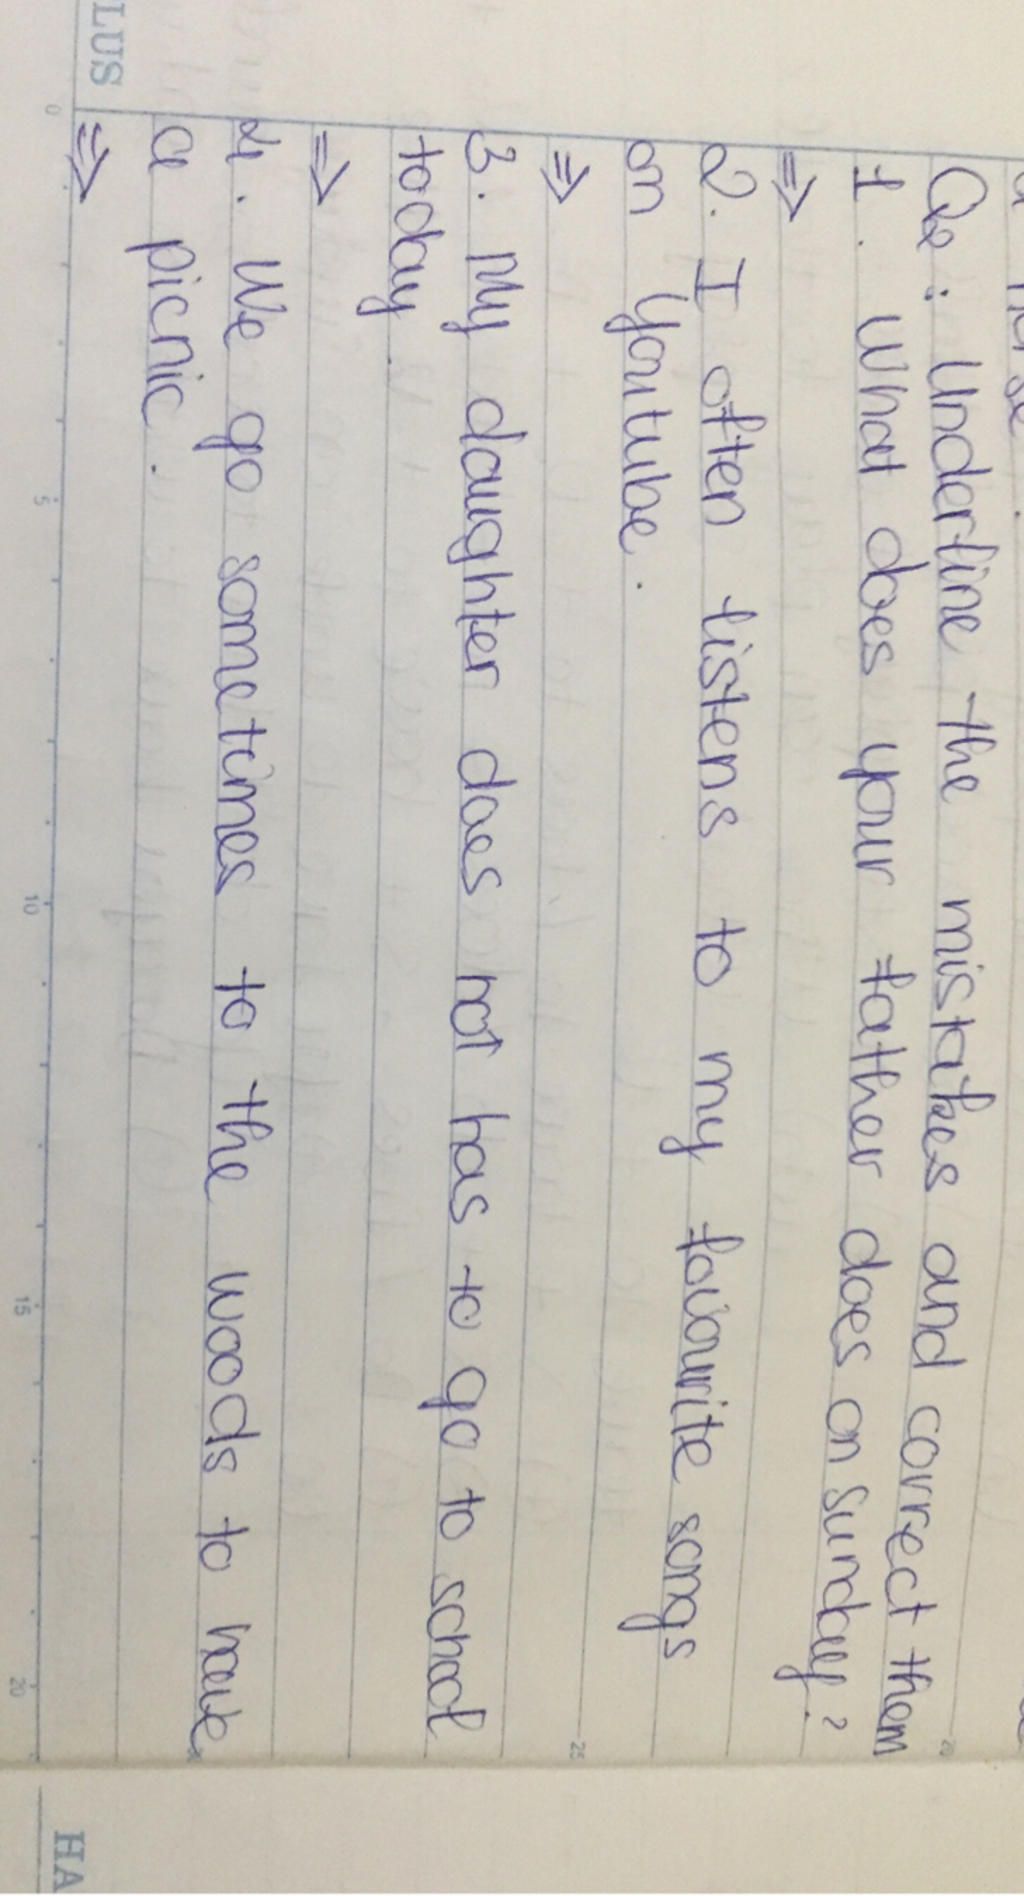 Q2: Underline the mistakes and correct them
1. What does your father does on Sunday?
⇒
2. I often listens to my favourite songs
on Youtube.
⇒
3. My daughter does not has to go to school
today.
⇒
4. We go sometimes to the woods to have
a picnic.
⇒
LUS
0 5 10 15 20
20
25
HA